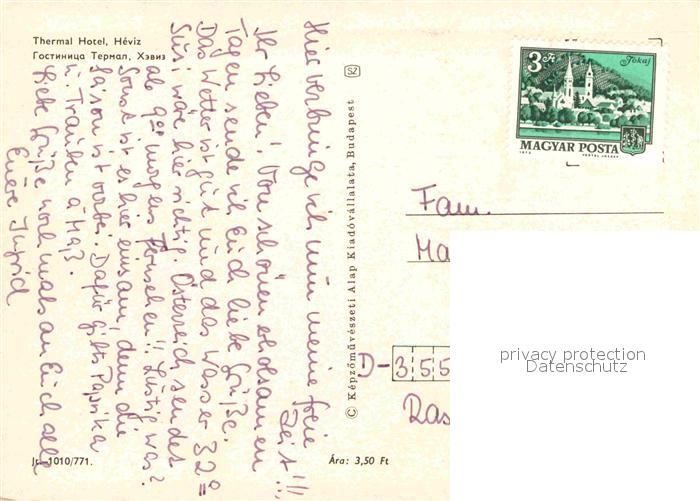 Thermal Hotel, Héviz
Гостиница Термал, Хэвиз
Hier verbringe ich nun meine freie
Zeit!!!
Ihr Lieben! Von schönen erholsamen
Tagen sende ich Euch liebe Grüße.
Das Wetter ist gut und das Wasser 32°
Susi wäre hier richtig. Österreich sendet
ab 9°° morgens Fernsehen!! Lustig was?
Sonst ist es hier einsam, denn die
Saison ist vorbei. Dafür gibts Paprika
u. Trauben a Maß.
Liebe Grüße nochmals an Euch alle
Euere Ingrid
Jr. 1010/771.
Ára: 3,50 Ft
© Képzőművészeti Alap Kiadóvállalata, Budapest
SZ
3 Ft
Tokaj
MAGYAR POSTA
1973
VERTEL JÓZSEF
Fam.
Ma
D-355
Ras
privacy protection
Datenschutz